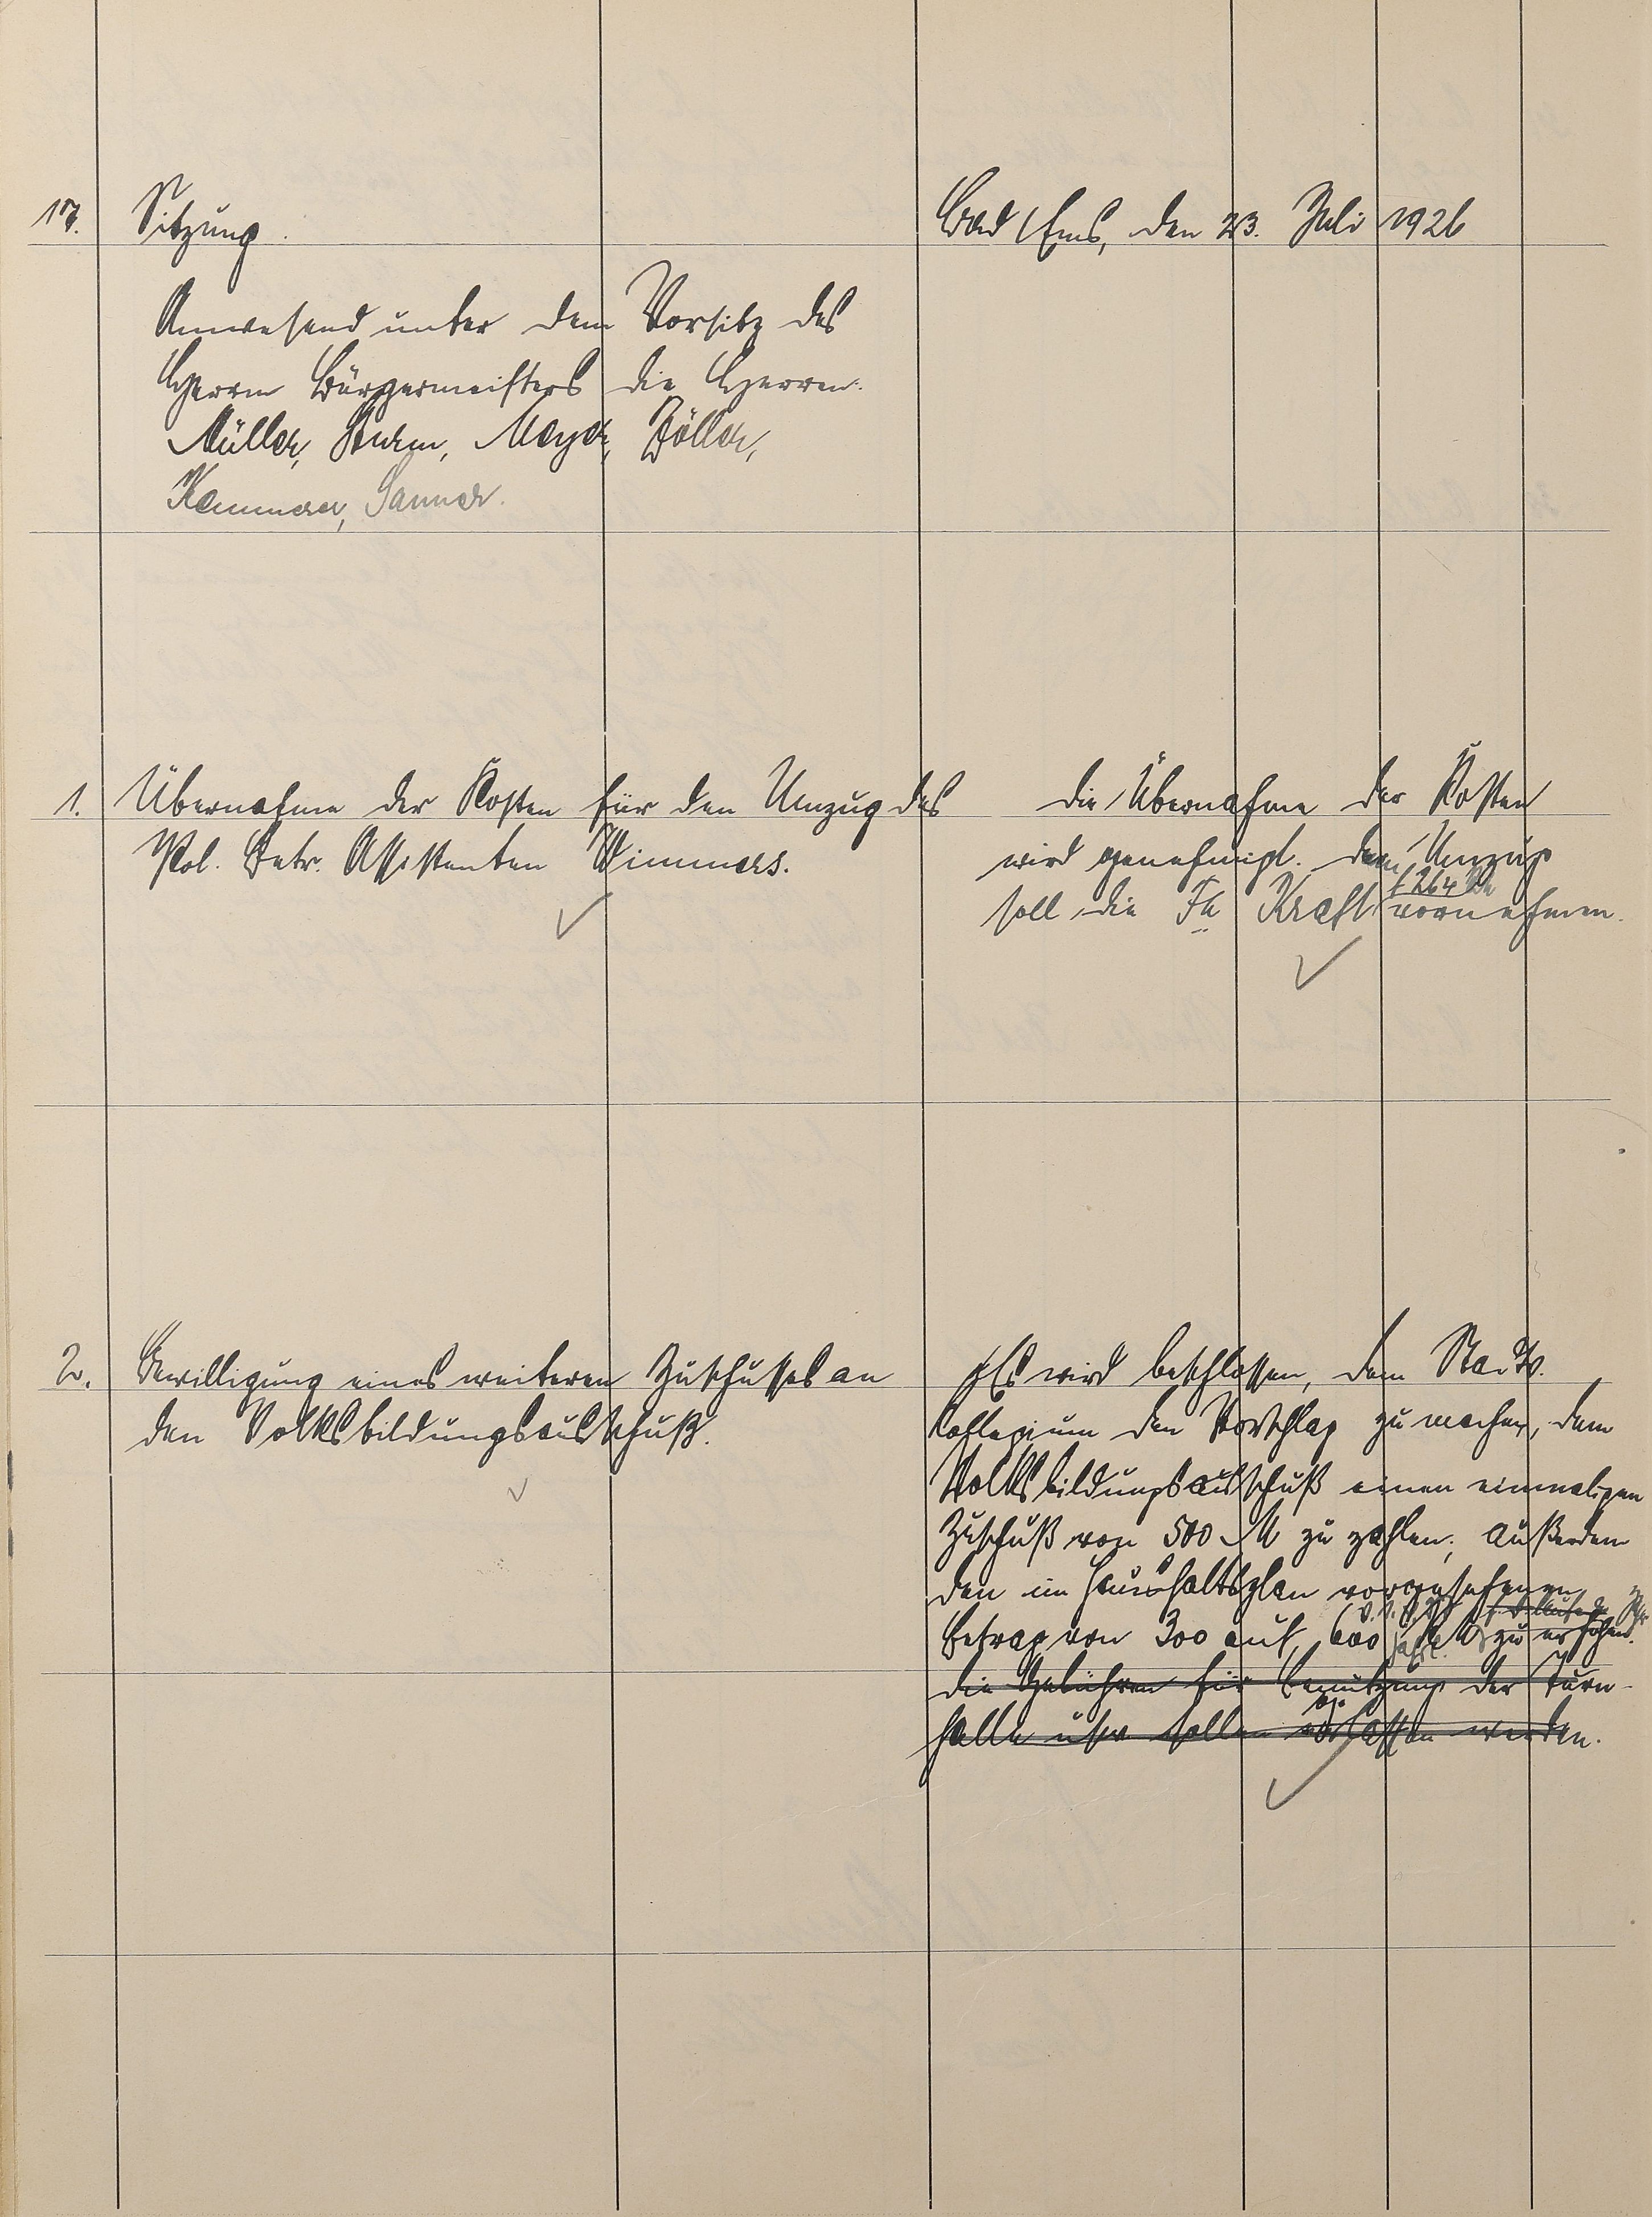 17. Sitzung. Bad Ems, den 23. Juli 1926
Anwesend unter dem Vorsitz des
Herrn Bürgermeisters die Herren:
Müller, Sturm, Meyer, Zöller,
Kammerer, Sanner.
1. Übernahme der Kosten für den Umzug des
Pol. Betr. Assistenten Wimmers.
Die Übernahme der Kosten
wird genehmigt. Den Umzug
f. 264 M
soll die Fa Kraft vornehmen.
2. Bewilligung eines weiteren Zuschusses an
den Volksbildungsausschuß.
Es wird beschlossen, dem Stadtv.
Kollegium den Vorschlag zu machen, dem
Volksbildungsausschuß einen einmaligen
Zuschuß von 500 M zu zahlen, außerdem
den im Haushaltsplan vorgesehenen
Betrag von 300 auf 600 jährl. zu erhöhen.
Die Gebühren für Benutzung der Turn-
halle usw sollen erlassen werden.